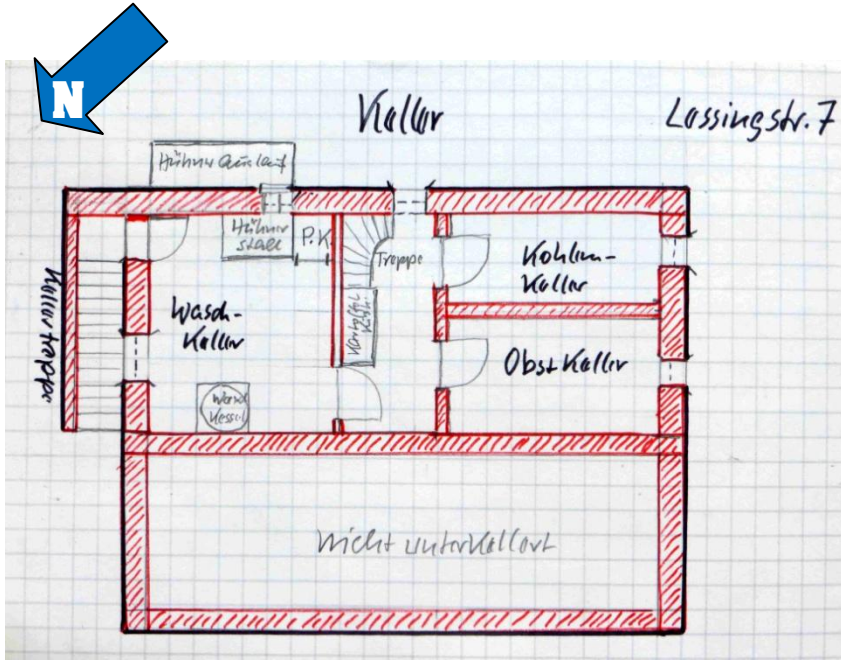 N
Keller
Lessingstr. 7
Hühner Auslauf
Hühner
stall
P.K.
Treppe
Kohlen-
Keller
Kellertreppe
Wasch-
Keller
Obst Keller
Wasch
Kessel
nicht unterkellert